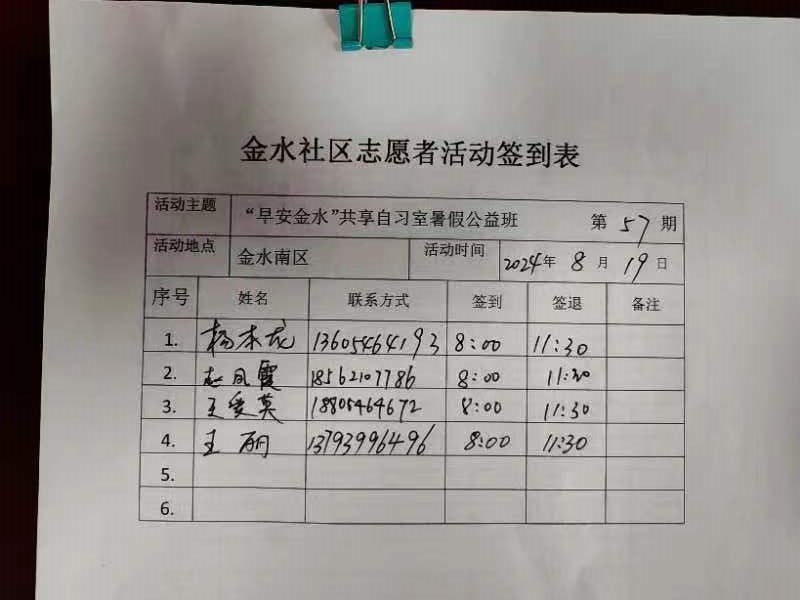 金水社区志愿者活动签到表
活动主题 “早安金水”共享自习室暑假公益班 第 57 期
活动地点 金水南区 活动时间 2024年 8月 19日
序号 姓名 联系方式 签到 签退 备注
1. 杨本龙 13605464193 8:00 11:30
2. 赵凤霞 18562107786 8:00 11:30
3. 王爱英 18805464672 8:00 11:30
4. 王丽 13793996496 8:00 11:30
5.
6.